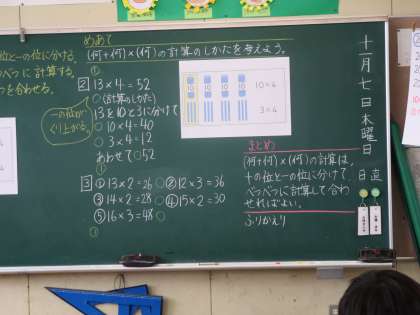 位と一の位に分ける。
べつに計算する。
つを合わせる。
めあて
(何+何)×(何)の計算のしかたを考えよう。
①
2 13×4=52
(計算のしかた)
13を10と3に分けて
10×4=40
3×4=12
あわせて 52
一の位が
くり上がる。
10×4
3×4
3 ①13×2=26 ②12×3=36
③14×2=28 ④15×2=30
⑤16×3=48
まとめ
(何+何)×(何)の計算は、
十の位と一の位に分けて、
べつべつに計算して合わ
せればよい。
ふりかえり
十一月七日木曜日
日直